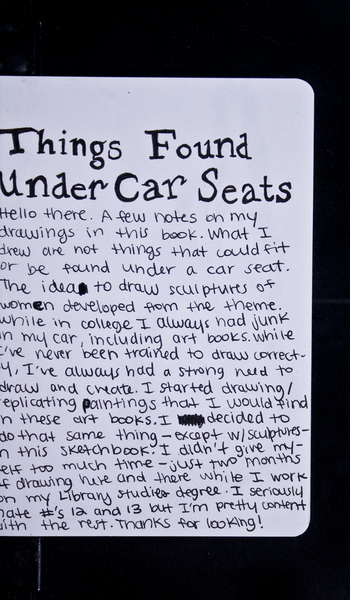 Things Found
Under Car Seats
Hello there. A few notes on my
drawings in this book. What I
drew are not things that could fit
or be found under a car seat.
The idea to draw sculptures of
women developed from the theme.
While in college I always had junk
in my car, including art books. While
I've never been trained to draw correct-
ly, I've always had a strong need to
draw and create. I started drawing/
replicating paintings that I would find
in these art books. I decided to
do that same thing - except w/sculptures-
in this sketchbook. I didn't give my-
self too much time - just two months
of drawing here and there while I work
on my Library Studies degree. I seriously
hate #'s 12 and 13 but I'm pretty content
with the rest. Thanks for looking!